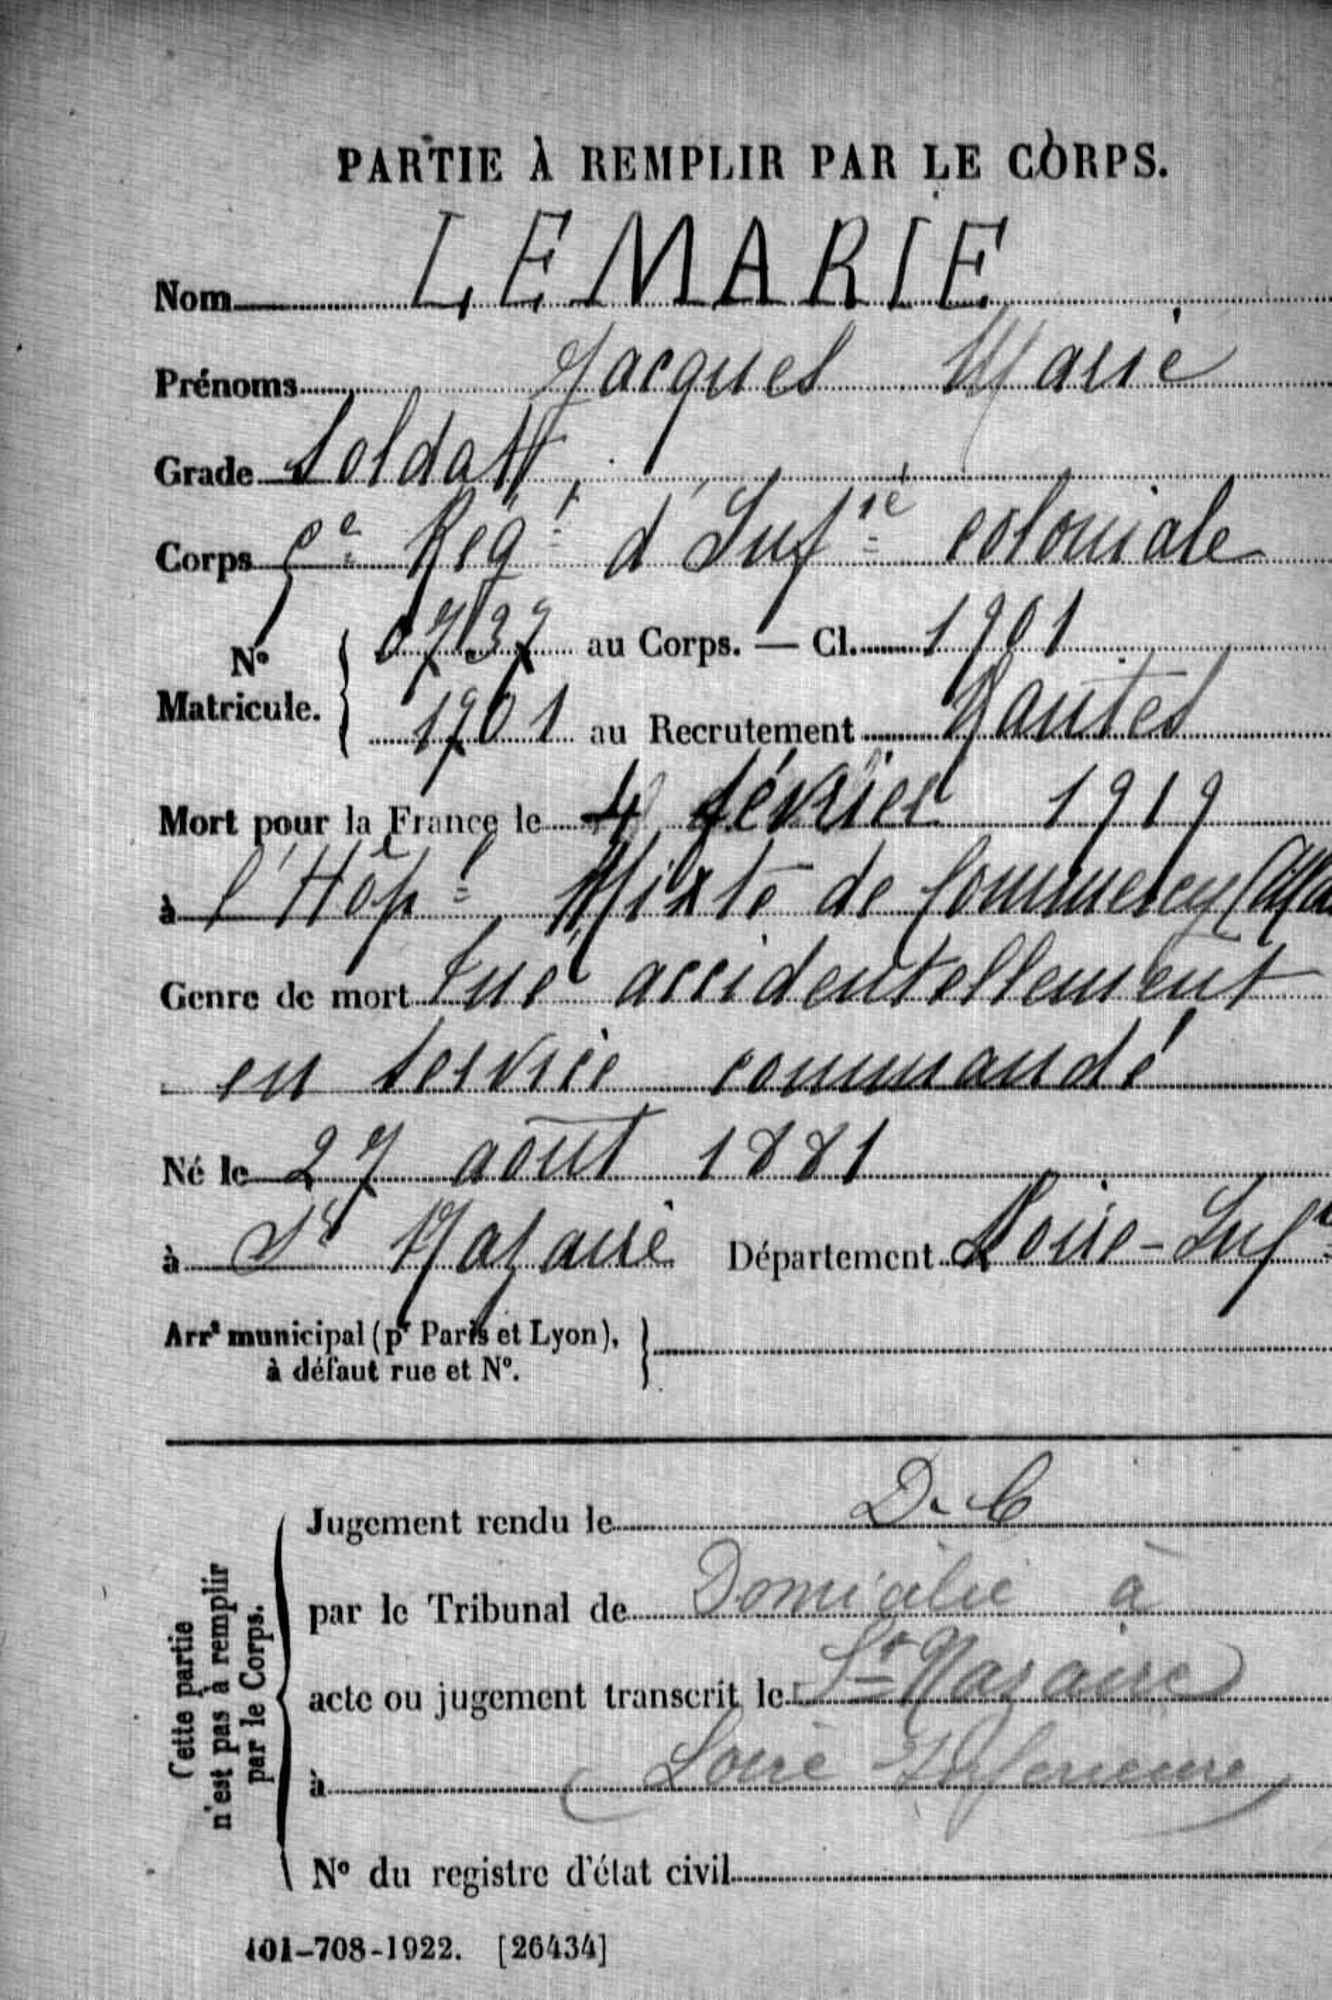 PARTIE À REMPLIR PAR LE CORPS.
Nom LEMARIE
Prénoms Jacques Marie
Grade Soldat
Corps 5e Regt d'Infie coloniale
No Matricule. 0737 au Corps. — Cl. 1901
1701 au Recrutement Nantes
Mort pour la France le 4 février 1919
à l'Hôpl Mixte de Commercy
Genre de mort Tué accidentellement
en service commandé
Né le 27 août 1881
à St Nazaire Département Loire-Infre
Arrt municipal (pr Paris et Lyon),
à défaut rue et No.
Cette partie
n'est pas à remplir
par le Corps.
Jugement rendu le D.C
par le Tribunal de Domicilié à
acte ou jugement transcrit le St Nazaire
à (Loire Inferieure)
No du registre d'état civil
101-708-1922. [26434]